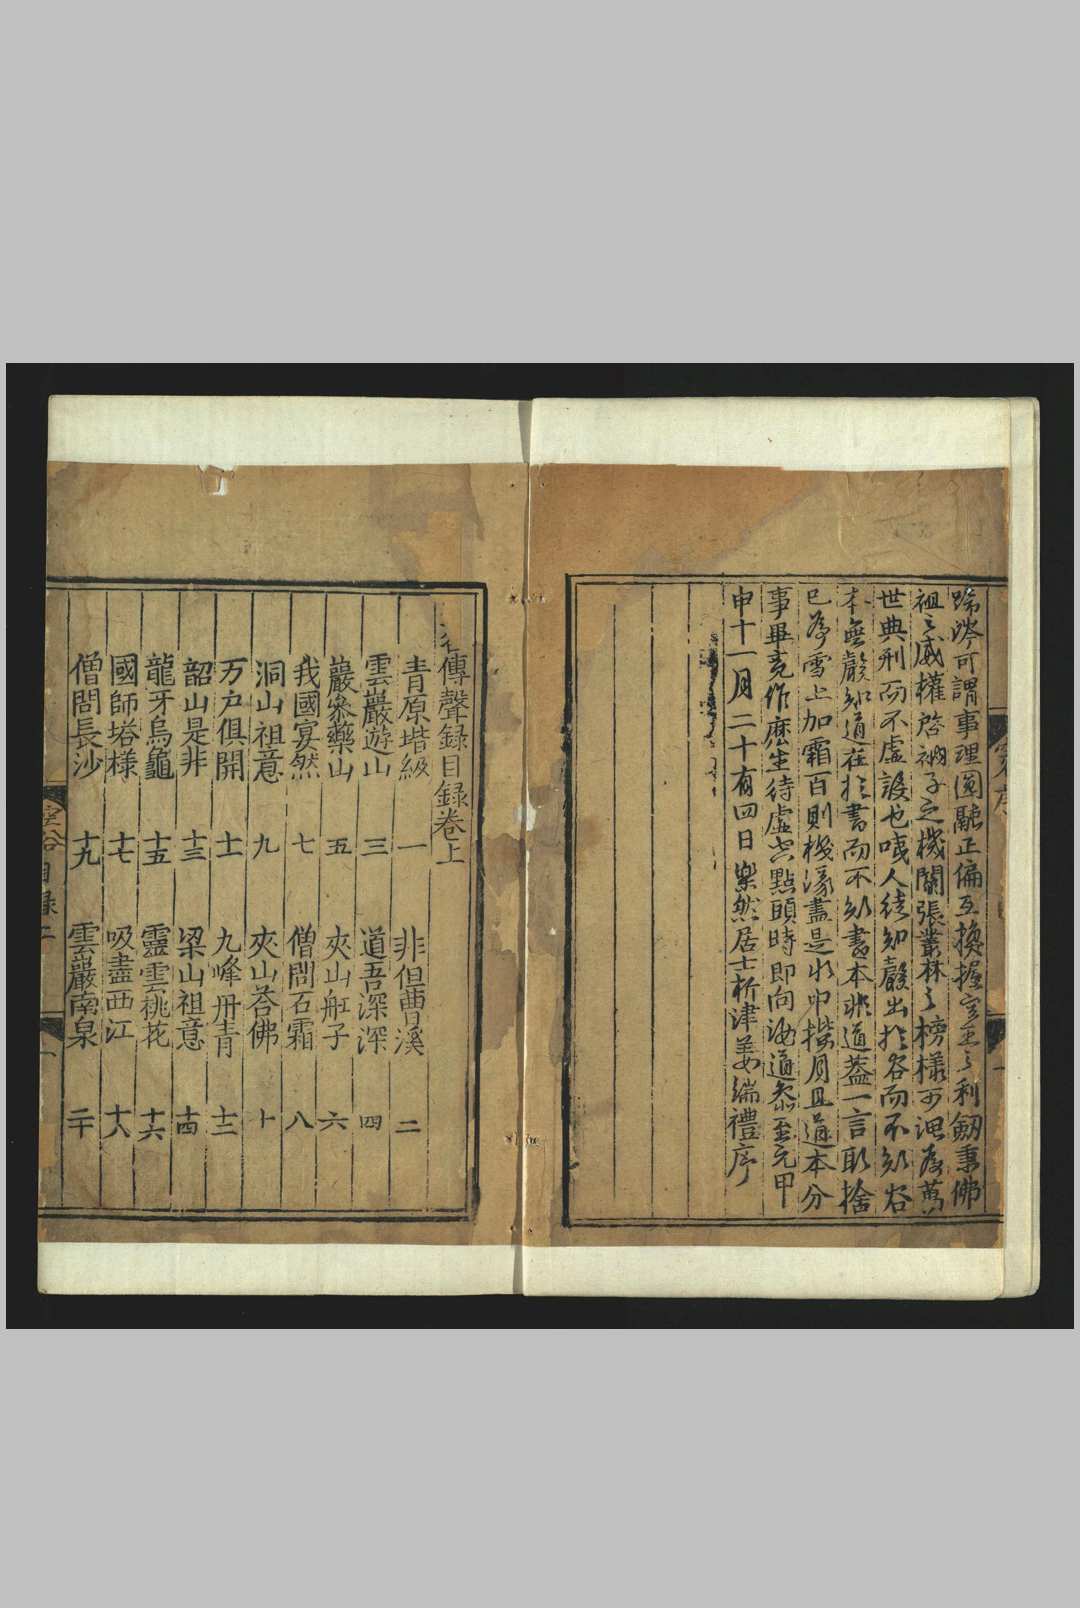 蹄涔可謂事理圓融正偏互換握空王之利劒秉佛
祖之威權啓衲子之機關張叢林之榜樣可謂為萬
世典刑而不虛設也嘆人徒知聲出於谷而不知谷
本無聲知道在於書而不知書本非道蓋一言取捨
已為雪上加霜百則機緣盡是水中撈月且道本分
事畢竟作麽生待虛空點頭時即向汝道泰至元甲
申十一月二十有四日樂然居士析津姜端禮序
傳聲録目録卷上
青原堦級 一 非但曹溪 二
雲巖遊山 三 道吾深深 四
巖叅藥山 五 夾山舡子 六
我國宴然 七 僧問石霜 八
洞山祖意 九 夾山荅佛 十
万户俱開 十一 九峰丹青 十二
韶山是非 十三 梁山祖意 十四
龍牙烏龜 十五 靈雲桃花 十六
國師塔様 十七 吸盡西江 十八
僧問長沙 十九 雲巖南泉 二十
空谷目録